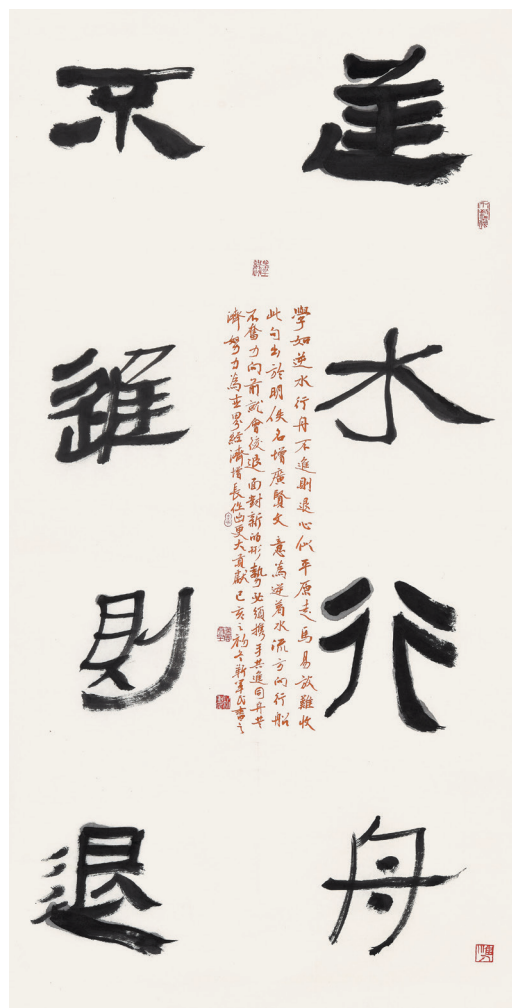 逆水行舟
不進則退
學如逆水行舟不進則退心似平原走馬易放難收
此句出於明佚名增廣賢文意為逆着水流方向行船
不奮力向前就會後退面對新的形勢必須携手共進同舟共
濟努力為世界經濟增長作出更大貢獻己亥之初軍書之